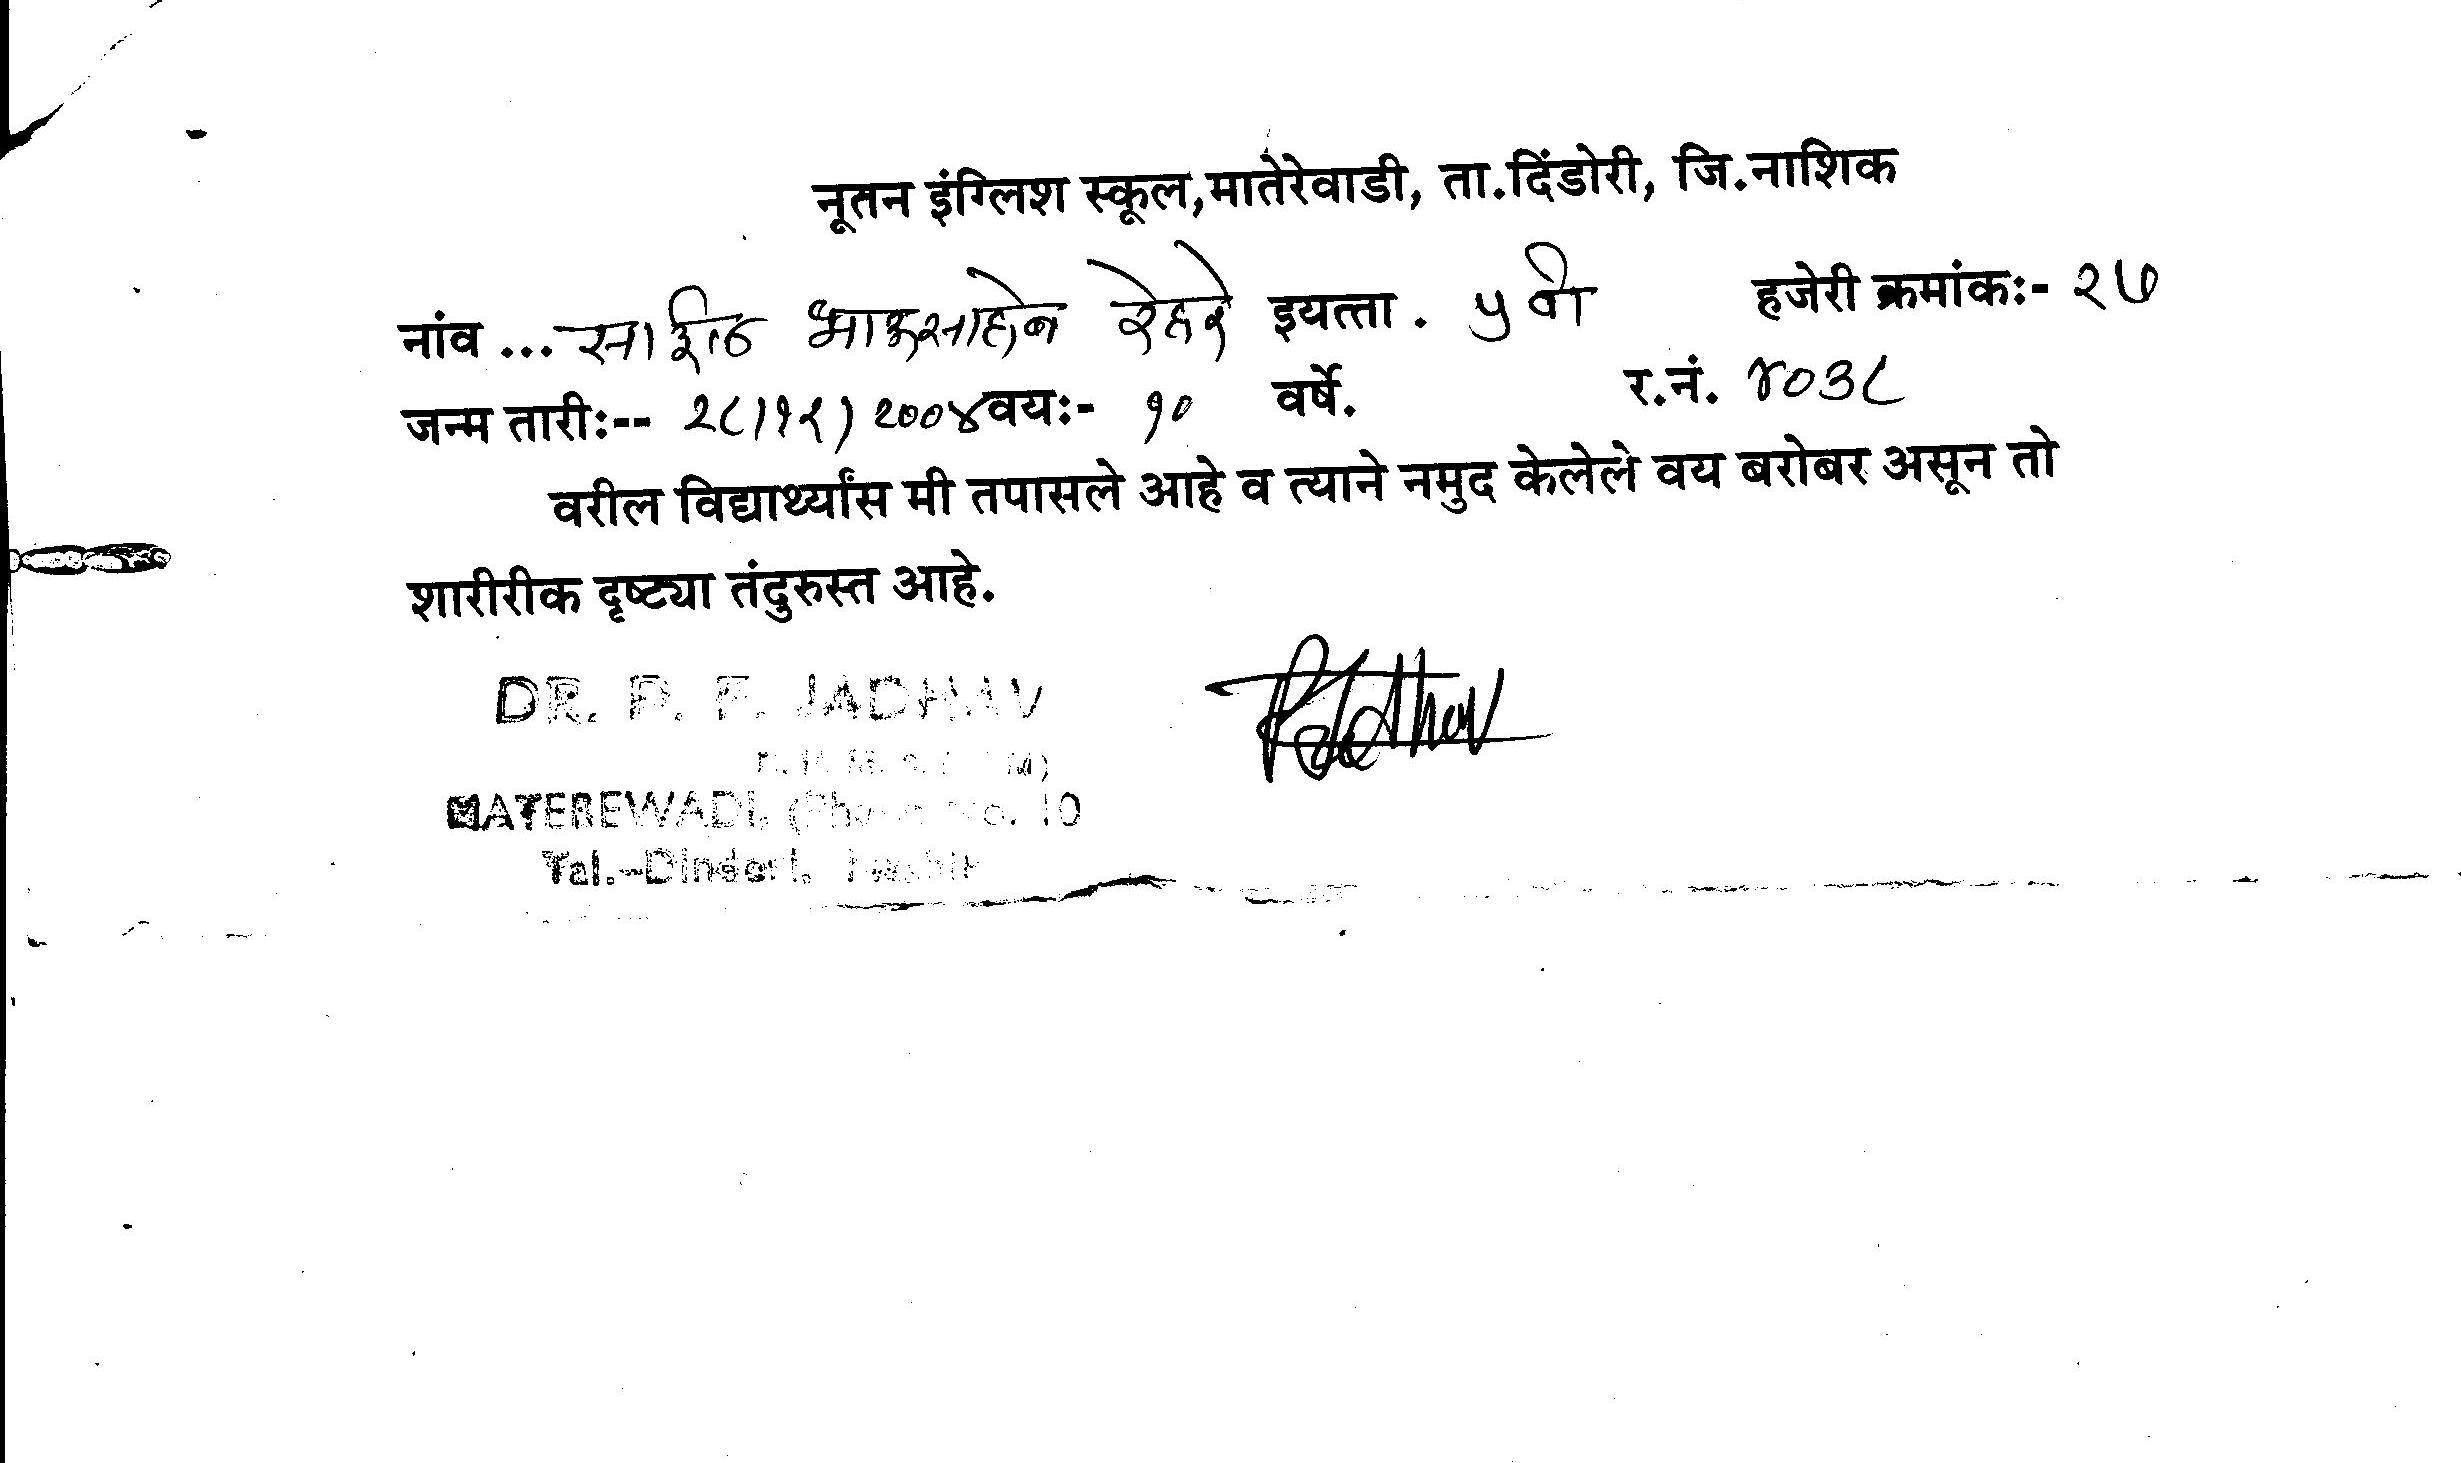 नूतन इंग्लिश स्कूल,मातेरेवाडी, ता.दिंडोरी, जि.नाशिक
नांव ... भाऊसाहेब रेहरे इयत्ता . ५ वी हजेरी क्रमांकः- २७
जन्म तारीः-- २८/१२/२००४ वयः- १० वर्षे. र.नं. ४०३८
वरील विद्यार्थ्यांस मी तपासले आहे व त्याने नमुद केलेले वय बरोबर असून तो
शारीरीक दृष्ट्या तंदुरुस्त आहे.
DR. P. F. JADHAV
MATEREWADI, (Phone No. 10
Tal.-Dindori, Nashik